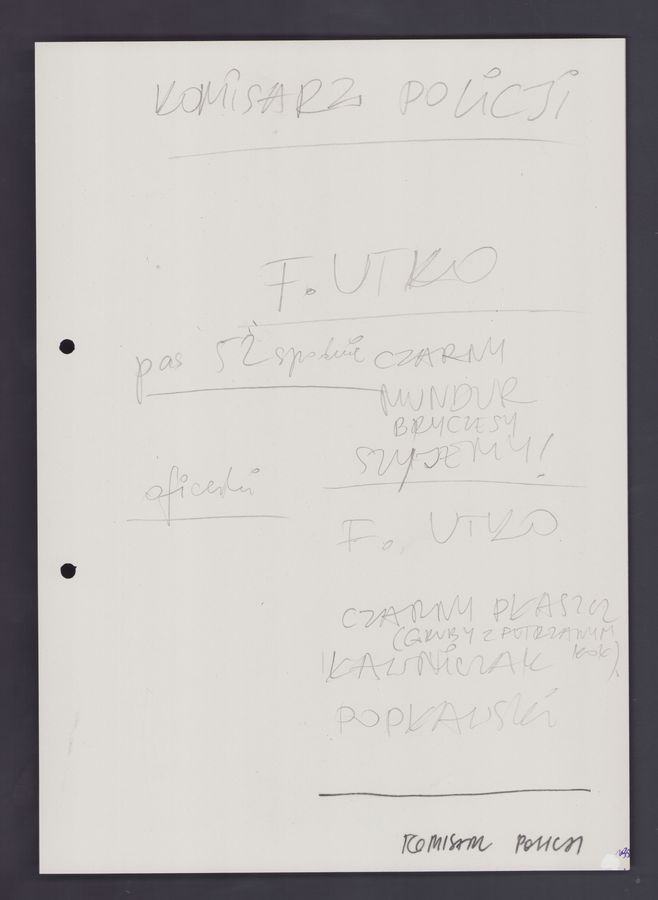 KOMISARZ POLICJI
F. UTKO
pas 52 spodnie CZARNY
MUNDUR
BRYCZESY
SZYJEMY!
oficerki
F. UTKO
CZARNY PŁASZCZ
(GRUBY Z FUTRZANYM
KOŁ).
POPŁAWSKI
KOMISARZ POLICJI